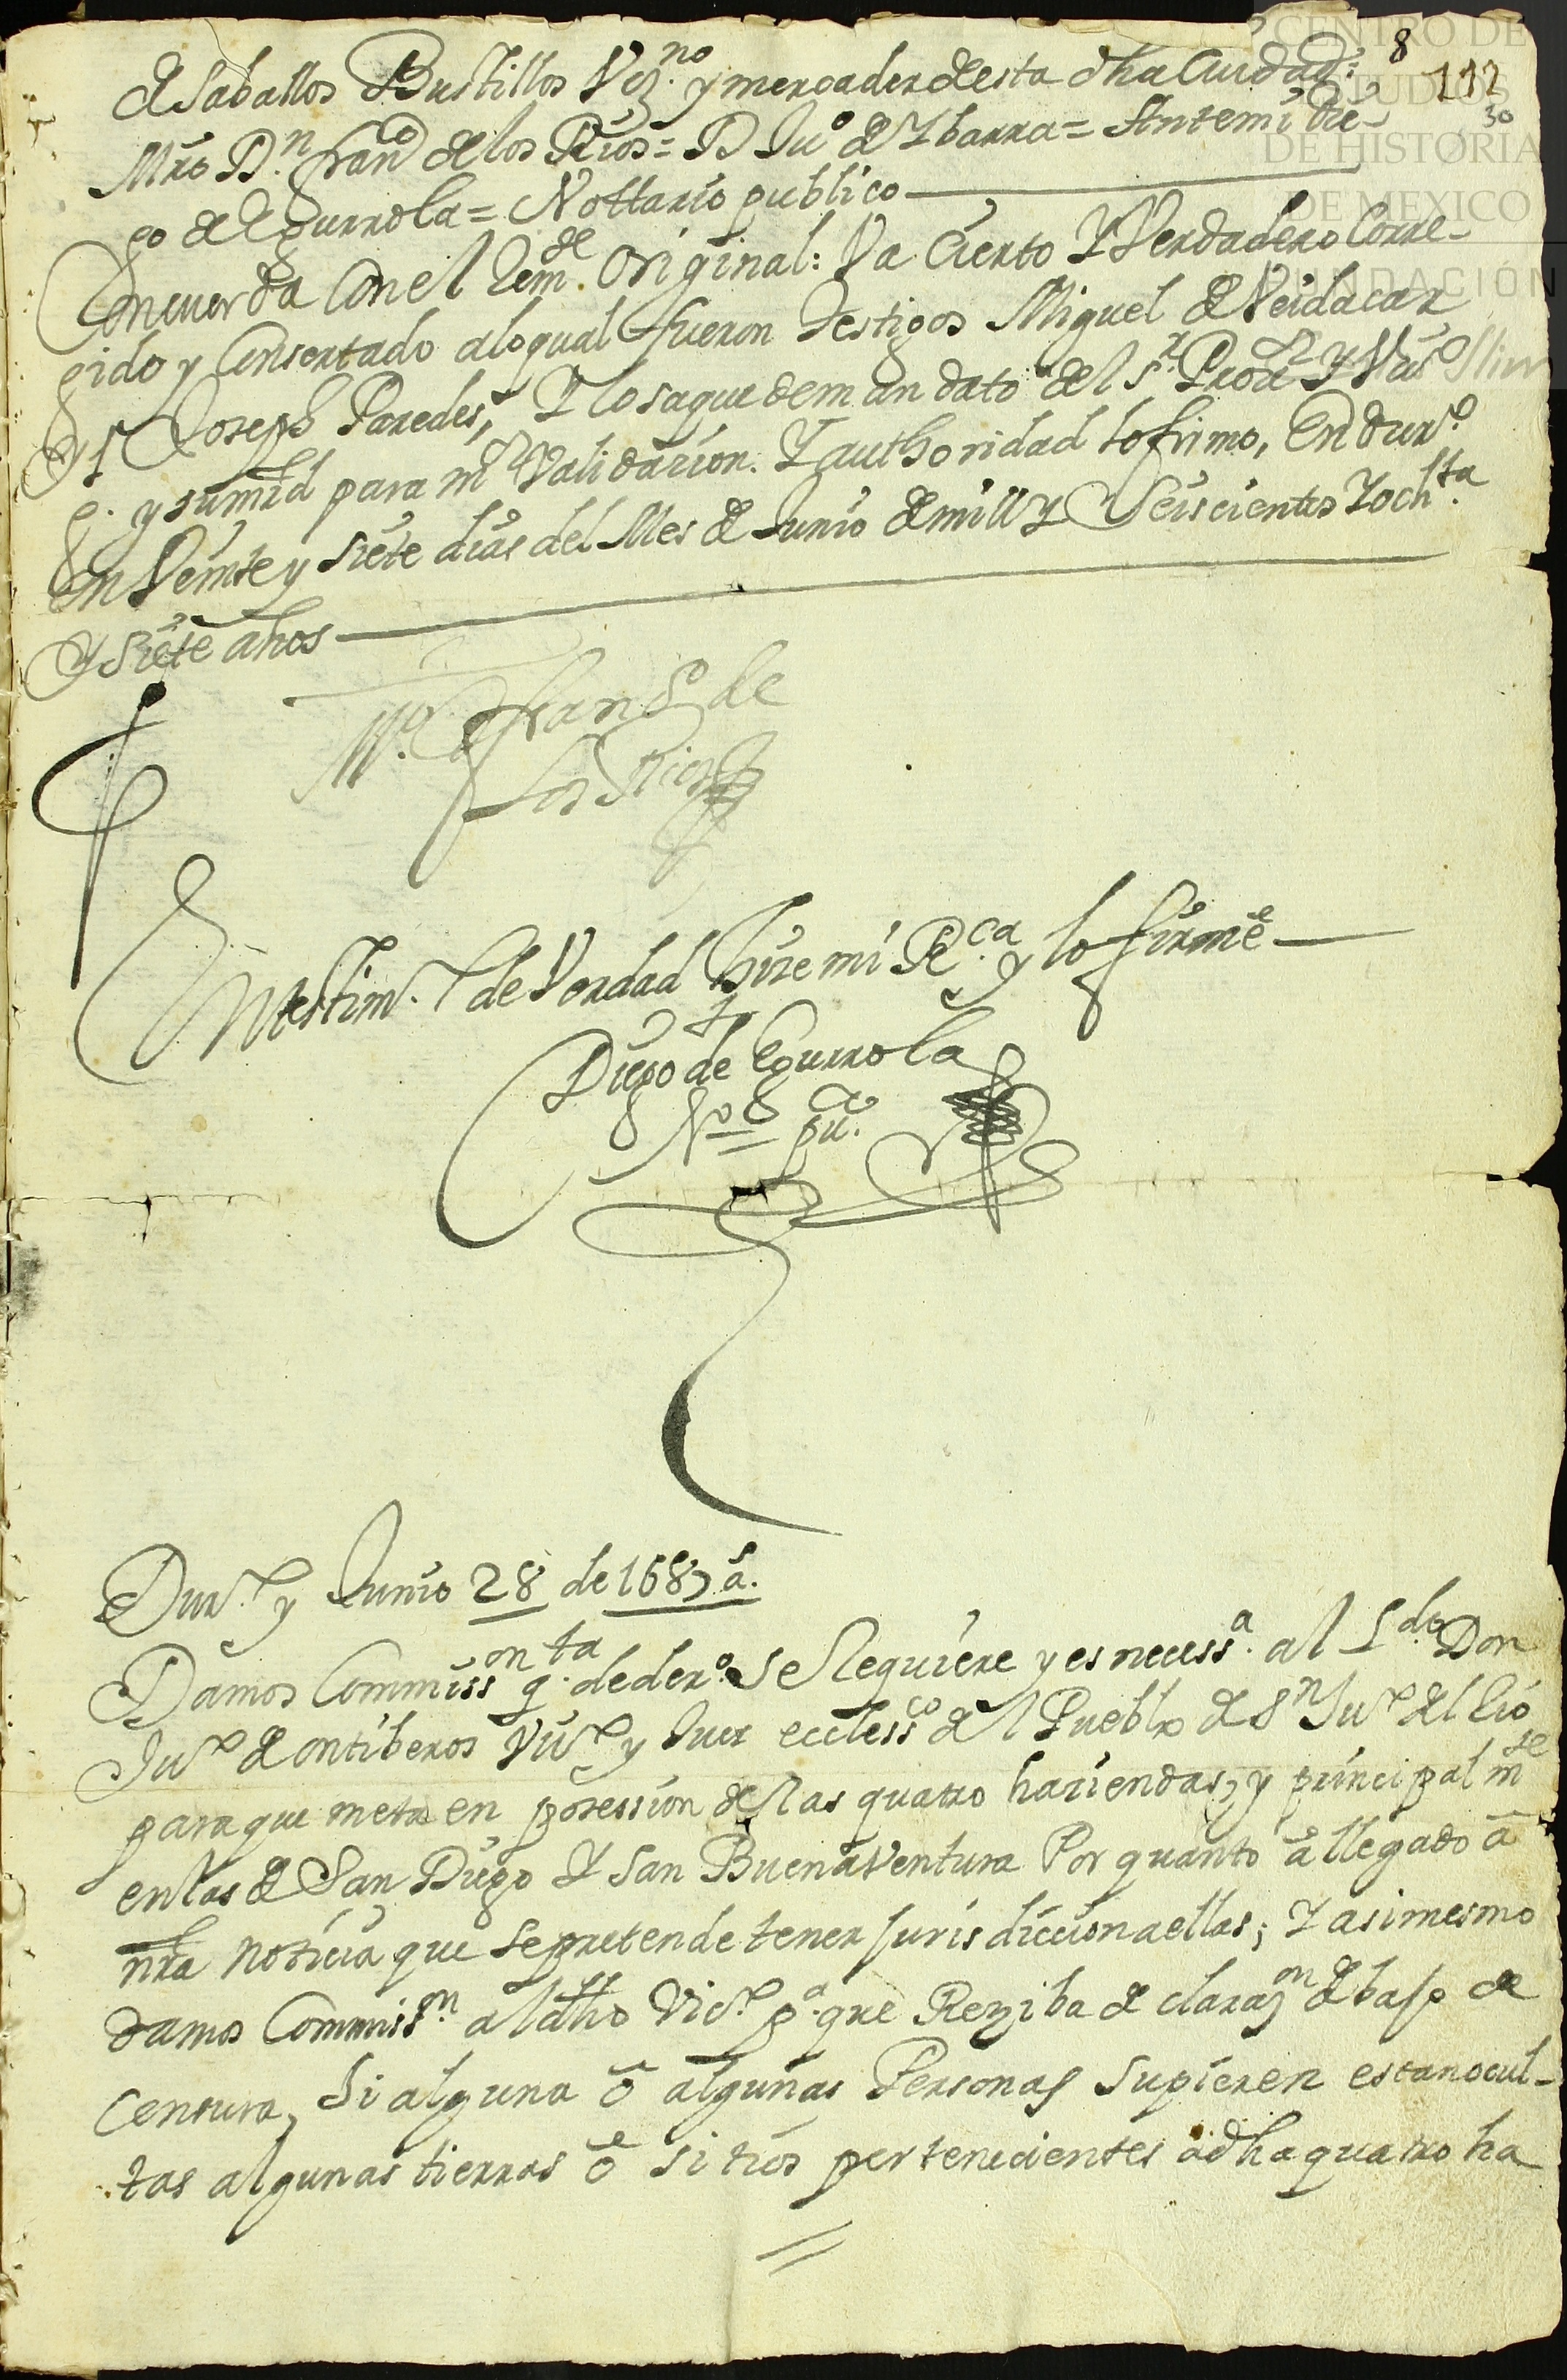 8
112
30
CENTRO DE
ESTUDIOS
DE HISTORIA
DE MEXICO
FUNDACIÓN
de Saballos Bustillos Vez.no y mercader desta dha Ciudad:
Mro Dn. Franco de los Rios = D Juo de Ybarra = Antemi Die-
go de Egurrola = Nottario publico
Concuerda Con el Rem.de Original: Va Cierto Y Verdadero Corre-
gido y Consertado alo qual fueron testigos Miguel de
y Joseph Paredes, Y lo saque de mandato del Sr. Pror Y Vico
g. y su md para mr Validacion. Y authoridad lo firmo, En Duro
en Veinte y siete dias del Mes de Junio de mill Y Seiscientos Y och.ta
Y Siete años
Mo. Frano de
los Rios
En testim.o de Verdad hize mi Re.ca y lo firme
Diego de Egurrola
No puco.
Duro. y Junio 28 de 1687 as.
Damos Commisson qta. de dero. se Requiere y es necessa. al Ldo Don
Juo de ontiberos Vico y Juez ecclessco del Pueblo de Sn Juo del Rio
para que meta en posession de las quatro haziendas, y principal mte
en las de San Diego Y San Buenaventura Por quanto á llegado á
nra noticia que se pretende tener jurisdiccion a ellas; Y asimesmo
damos Commisson al dho Vico pa. que Reziba declarazon debajo de
censura, Si alguna ó algunas Personas supieren estan ocul-
tas algunas tierras ó sitios pertenecientes a dha quatro ha